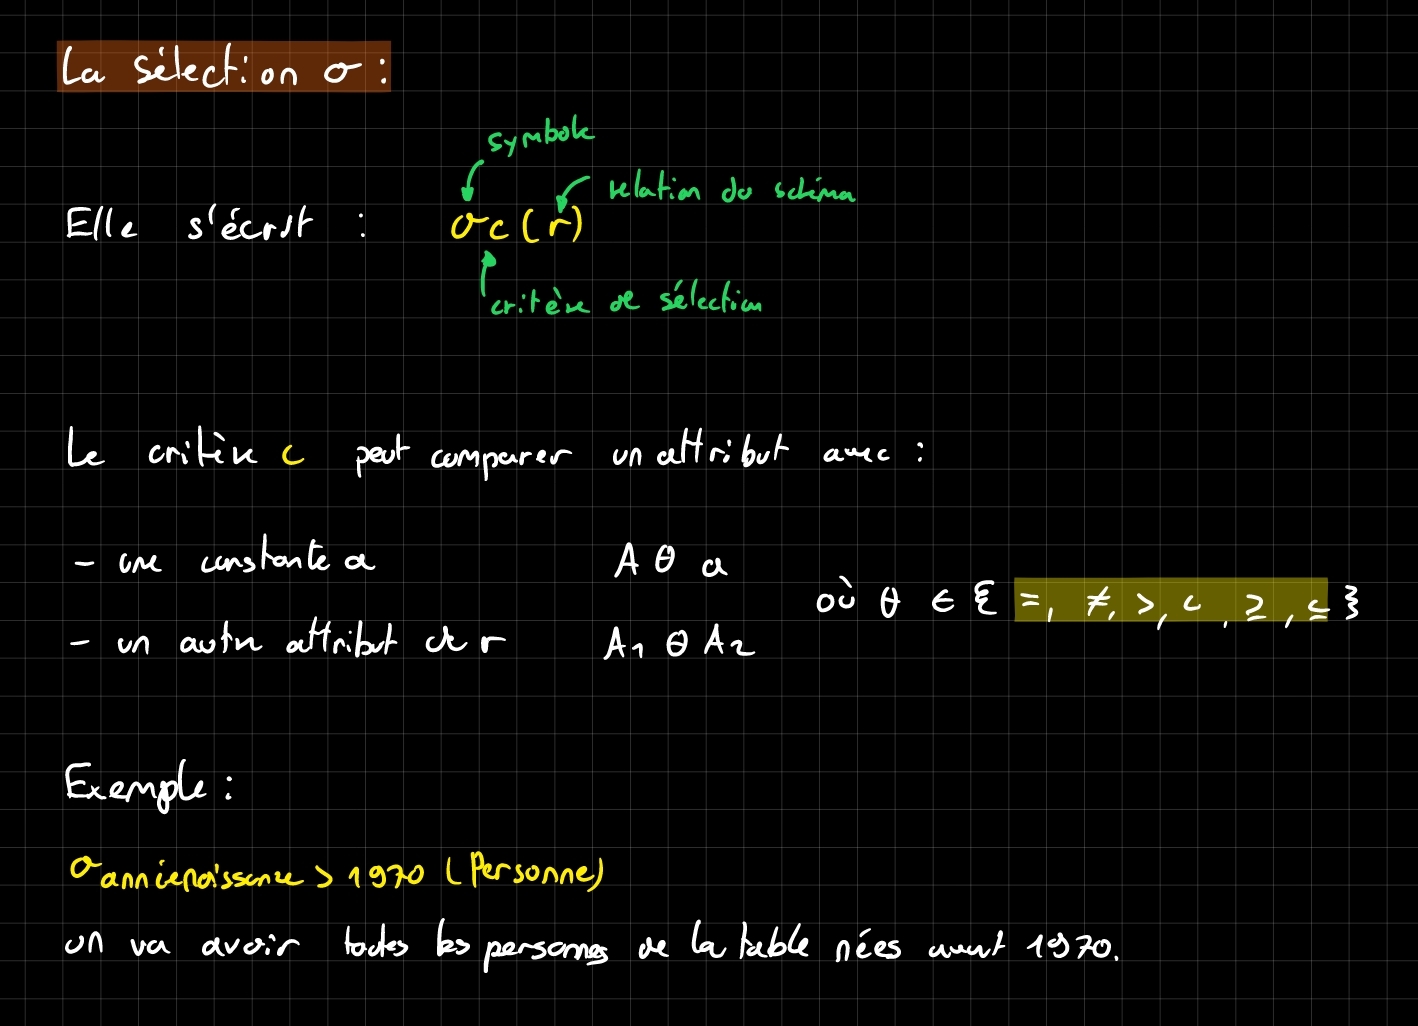 La sélection σ :
symbole
relation du schéma
Elle s'écrit : σc (r)
critère de sélection
Le critère c peut comparer un attribut avec :
- une constante a A θ a
où θ ∈ { =, ≠, >, <, ≥, ≤ }
- un autre attribut de r A1 θ A2
Exemple :
σ annéenaissance > 1970 (Personne)
on va avoir toutes les personnes de la table nées avant 1970.